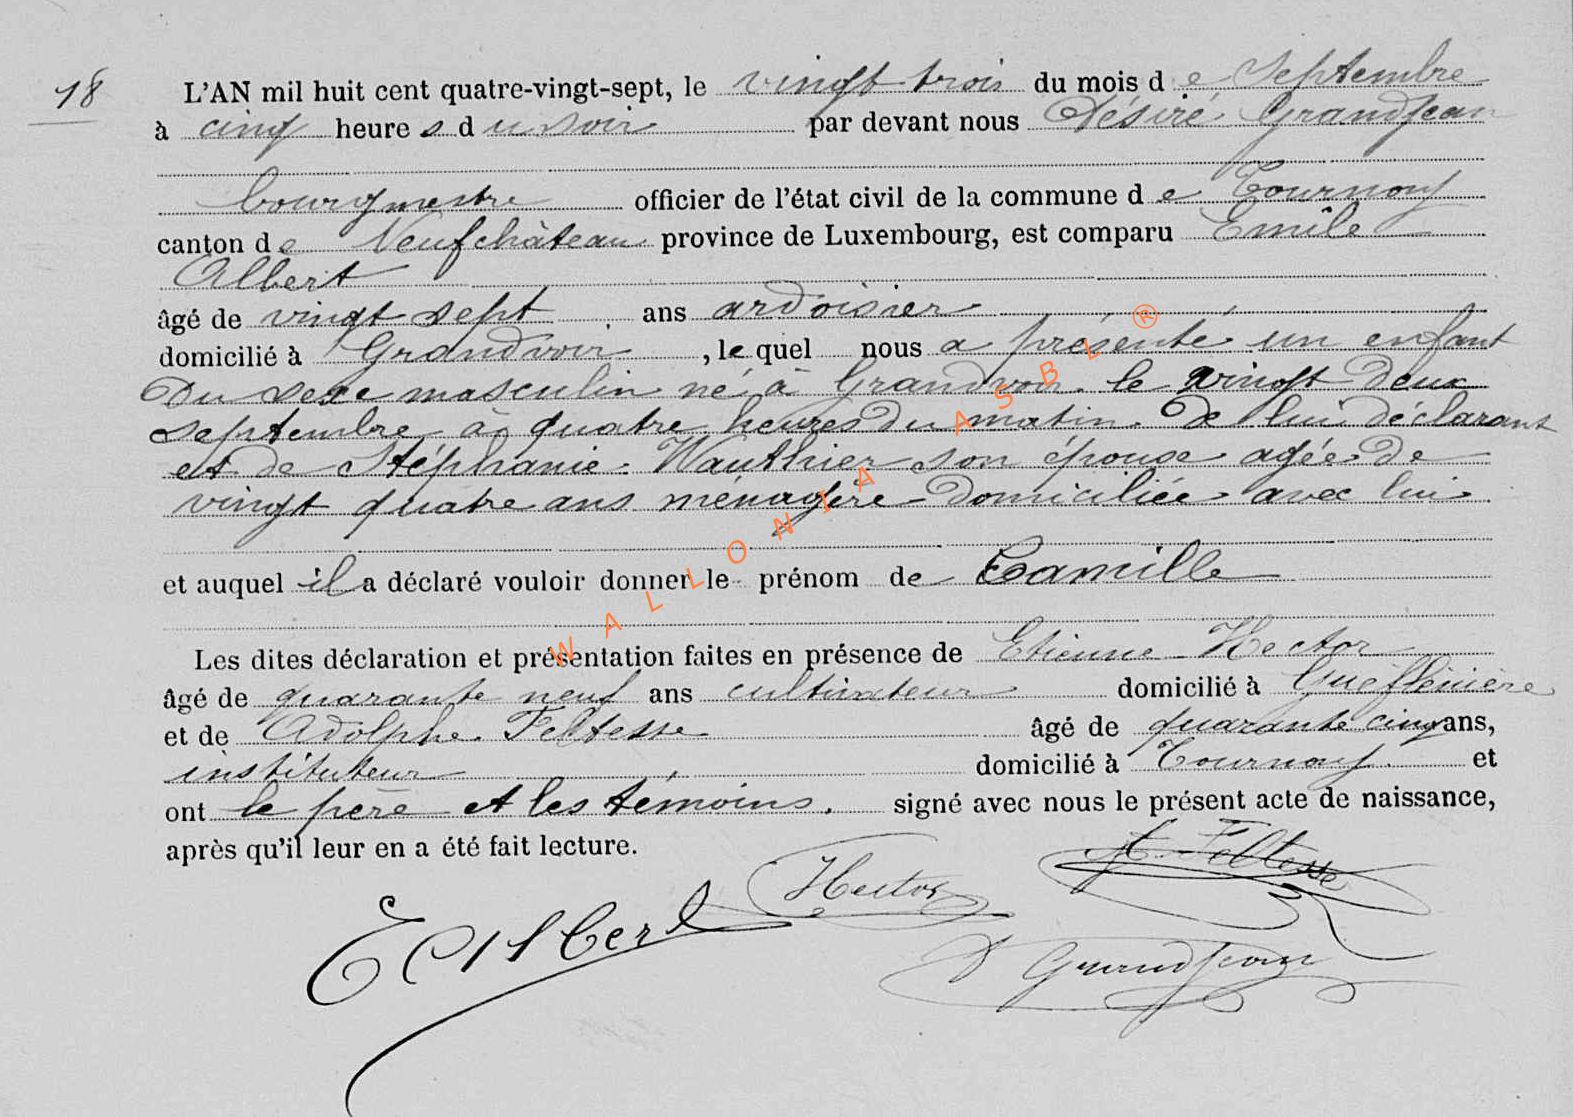 18
L'AN mil huit cent quatre-vingt-sept, le vingt trois du mois de Septembre
à cinq heures du soir par devant nous Désiré Grandjean
bourgmestre officier de l'état civil de la commune de Tournay
canton de Neufchâteau province de Luxembourg, est comparu Emile
Albert
âgé de vingt sept ans ardoisier
domicilié à Grandvoir, lequel nous a présenté un enfant
Du sexe masculin né à Grandvoir le vingt deux
septembre à quatre heures du matin. De lui déclarant
et de Stéphanie Wauthier son épouse agée de
vingt quatre ans ménagère domiciliée avec lui
et auquel il a déclaré vouloir donner le prénom de Camille
Les dites déclaration et présentation faites en présence de Etienne Hector
âgé de quarante neuf ans cultivateur domicilié à
et de Adolphe Feltesse âgé de quarante cinq ans,
instituteur domicilié à Tournay. et
ont le père et les témoins. signé avec nous le présent acte de naissance,
après qu'il leur en a été fait lecture.
A. Feltesse
Hector
E Albert
D Grandjean
WALLONIA ASBL ®